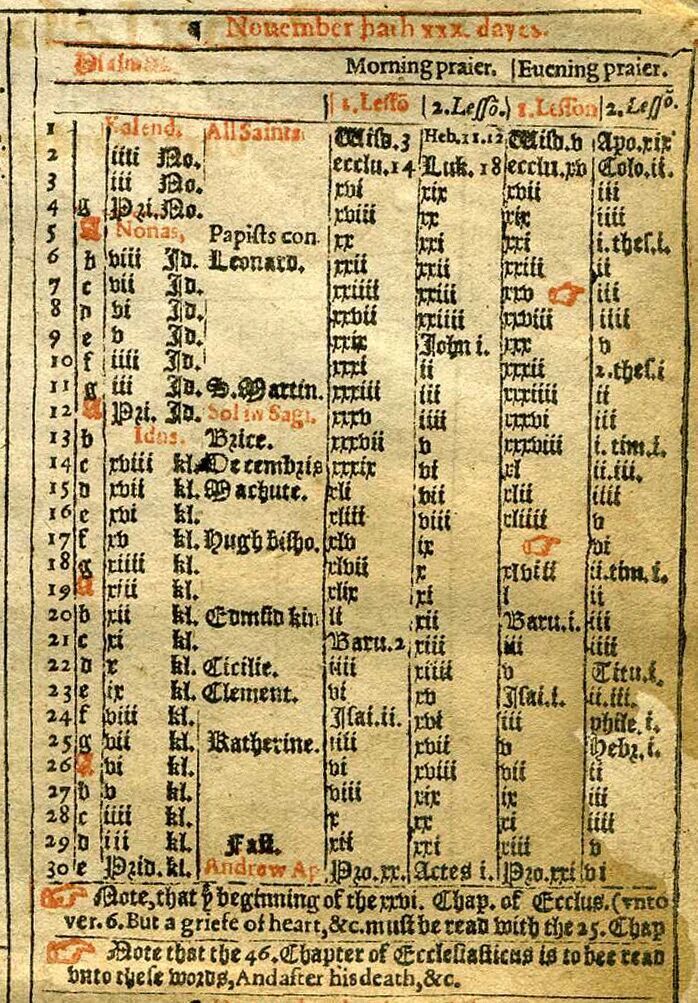 ¶ Nouember hath xxx. dayes.
Psalmes. Morning praier. Euening praier.
1. Lessõ 2. Lessõ. 1. Lesson 2. Lessõ.
1 Kalend. All Saints Wisd. 3 Heb. 11. 12 Wisd. v Apo. xix
2 iiii No. ecclu. 14 Luk. 18 ecclu. xv Colo. ii.
3 iii No. xvi xix xvii iii
4 g Pri. No. xviii xx xix iiii
5 A Nonas, Papists con. xx xxi xxi i. thes. i.
6 b viii Id. Leonard. xxii xxii xxiii ii
7 c vii Id. xxiiii xxiii xxv ☞ iii
8 d vi Id. xxvii xxiiii xxviii iiii
9 e v Id. xxix John i. xxx v
10 f iiii Id. xxxi ii xxxii 2. thes. i
11 g iii Id. S. Martin. xxxiii iii xxxiiii ii
12 A Pri. Id. Sol in Sagi. xxxv iiii xxxvi iii
13 b Idus. Brice. xxxvii v xxxviii i. tim. i.
14 c xviii kl. Decembris xxxix vi xl ii. iii.
15 d xvii kl. Machute. xli vii xlii iiii
16 e xvi kl. xliii viii xliiii v
17 f xv kl. Hugh bisho. xlv ix ☞ vi
18 g xiiii kl. xlvii x xlviii ii. tim. i.
19 A xiii kl. xlix xi l ii
20 b xii kl. Edmũd kin li xii Baru. i. iii
21 c xi kl. Baru. 2 xiii iii iiii
22 d x kl. Cicilie. iiii xiiii v Titu. i.
23 e ix kl. Clement. vi xv Isai. i. ii. iii.
24 f viii kl. Isai. ii. xvi iii phile. i.
25 g vii kl. Katherine. iiii xvii v Hebr. i.
26 A vi kl. vi xviii vii ii
27 b v kl. viii xix ix iii
28 c iiii kl. x xx xi iiii
29 d iii kl. Fast. xii xxi xiii v
30 e Prid. kl. Andrew Ap Pro. xx. Actes i. Pro. xxi vi
☞ Note, that yͤ beginning of the xxvi. Chap. of Ecclus. (vnto
ver. 6. But a griefe of heart, &c. must be read with the 25. Chap
☞ Note that the 46. Chapter of Ecclesiasticus is to bee read
vnto these words, And after his death, &c.